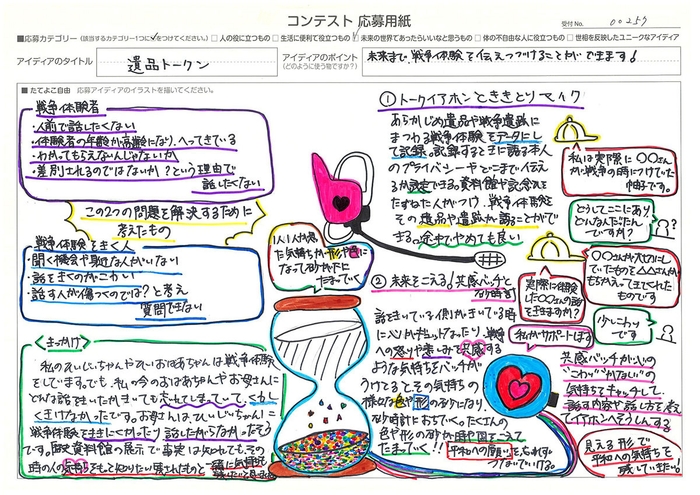 コンテスト 応募用紙
受付No. 00257
■応募カテゴリー(該当するカテゴリー1つに✓をつけてください。) □人の役に立つもの □生活に便利で役立つもの ☑未来の世界であったらいいなと思うもの □体の不自由な人に役立つもの □世相を反映したユニークなアイディア
アイディアのタイトル
遺品トークン
アイディアのポイント
(どのように使う物ですか?)
未来まで、戦争体験を伝えつづけることができます!
■たてよこ自由 応募アイディアのイラストを描いてください。
戦争体験者
・人前で話したくない
・体験者の年齢が高齢になり、へってきている
・わかってもらえないんじゃないか
・差別されるのではないか?という理由で
話したくない
この2つの問題を解決するために
考えたもの
戦争体験をきく人
・聞く機会や身近な人がいない
・話をきくのがこわい
・話す人が傷つくのでは?と考え
質問できない
<きっかけ>
私のひいじいちゃんやひいおばあちゃんは戦争体験
をしています。でも、私の今のおばあちゃんやお母さんに
どんな話をきいたかきいても忘れてしまっていて、くわし
くきけなかったです。お母さんは、ひいじいちゃんに
戦争体験をききにくかったり話したがらなかったそう
です。歴史資料館の展示で事実は知れても、その
時の人の気持ち
1人1人が感じ
た気持ちが形や色に
なって砂が下に
たまっていく
①トークイアホンとききとりマイク
あらかじめ遺品や戦争遺跡に
まつわる戦争体験をデータにし
て記録。記録するときに語る本人
のプライバシーやどこまで伝える
か設定できる。資料館や記念館を
たずねた人がつけ、戦争体験
その遺品や遺跡が語ることがで
きる。途中でやめても良い
私は実際に○○さん
が戦争の時につけていた
帽子です。
どうしてここにあり
どんな人だったん
ですか?
○○さんが大切にし
ていたものを△△さんが
もちかえってきてくれた
ものです
実際に体験
した○○さんの話
をききますか?
少しこわい
です
私がサポートします
②未来をこえる!共感バッチと
砂時計
話をきいている側がきいている時
に
への怒りや悲しみを共感する
ような気持ちをバッチが
うけてるとその気持ちの
様な色や形の砂になり、
砂時計におちていく。たくさんの
色や形の砂が時や国をこえて
たまっていく!!
平和への願いを忘れず
つないでいける。
共感バッチが心の
"こわい""かなしい"の
気持ちをキャッチして、
話す内容や話し方を考え
てイアホンへそうしんする
見える形で
平和への気持ちを
残していきたい!